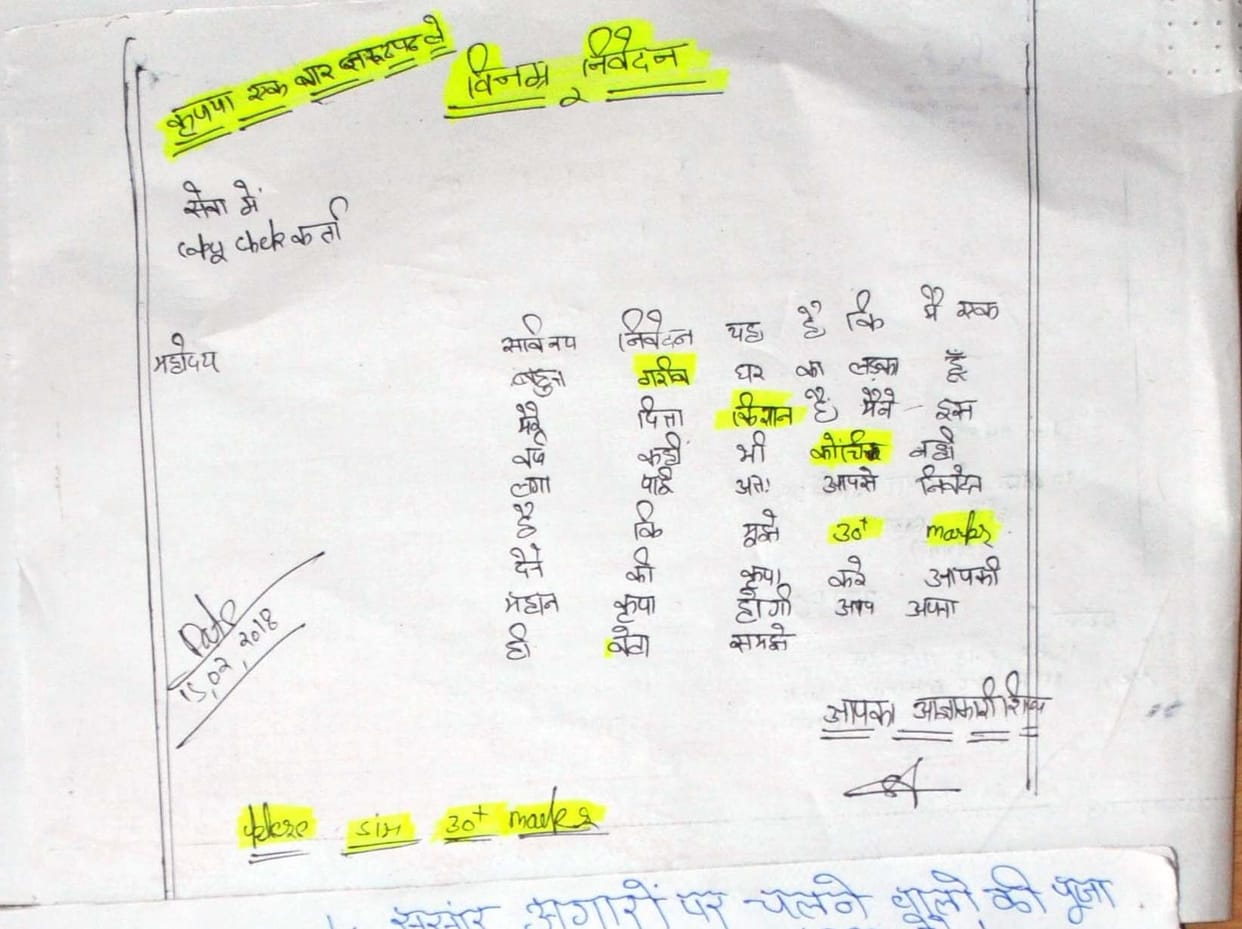 कृपया एक बार जरूर पढ ले
विनम्र निवेदन
सेवा में
copy chek कर्ता
महोदय
सविनय निवेदन यह है कि मै एक
बहुत गरीब घर का लड़का हूँ
मेरे पिता किसान है मैने इस
वर्ष कहीं भी कोचिंग नही
लगा पाई अतः आपसे निवेदन
है कि मुझे 30+ marks
देने की कृपा करे आपकी
महान कृपा होगी आप अपना
ही बेटा समझे
Date
15,02,2018
आपका आज्ञाकारी शिष्य
sir 30+ marks
अगारों पर चलने की पूजा